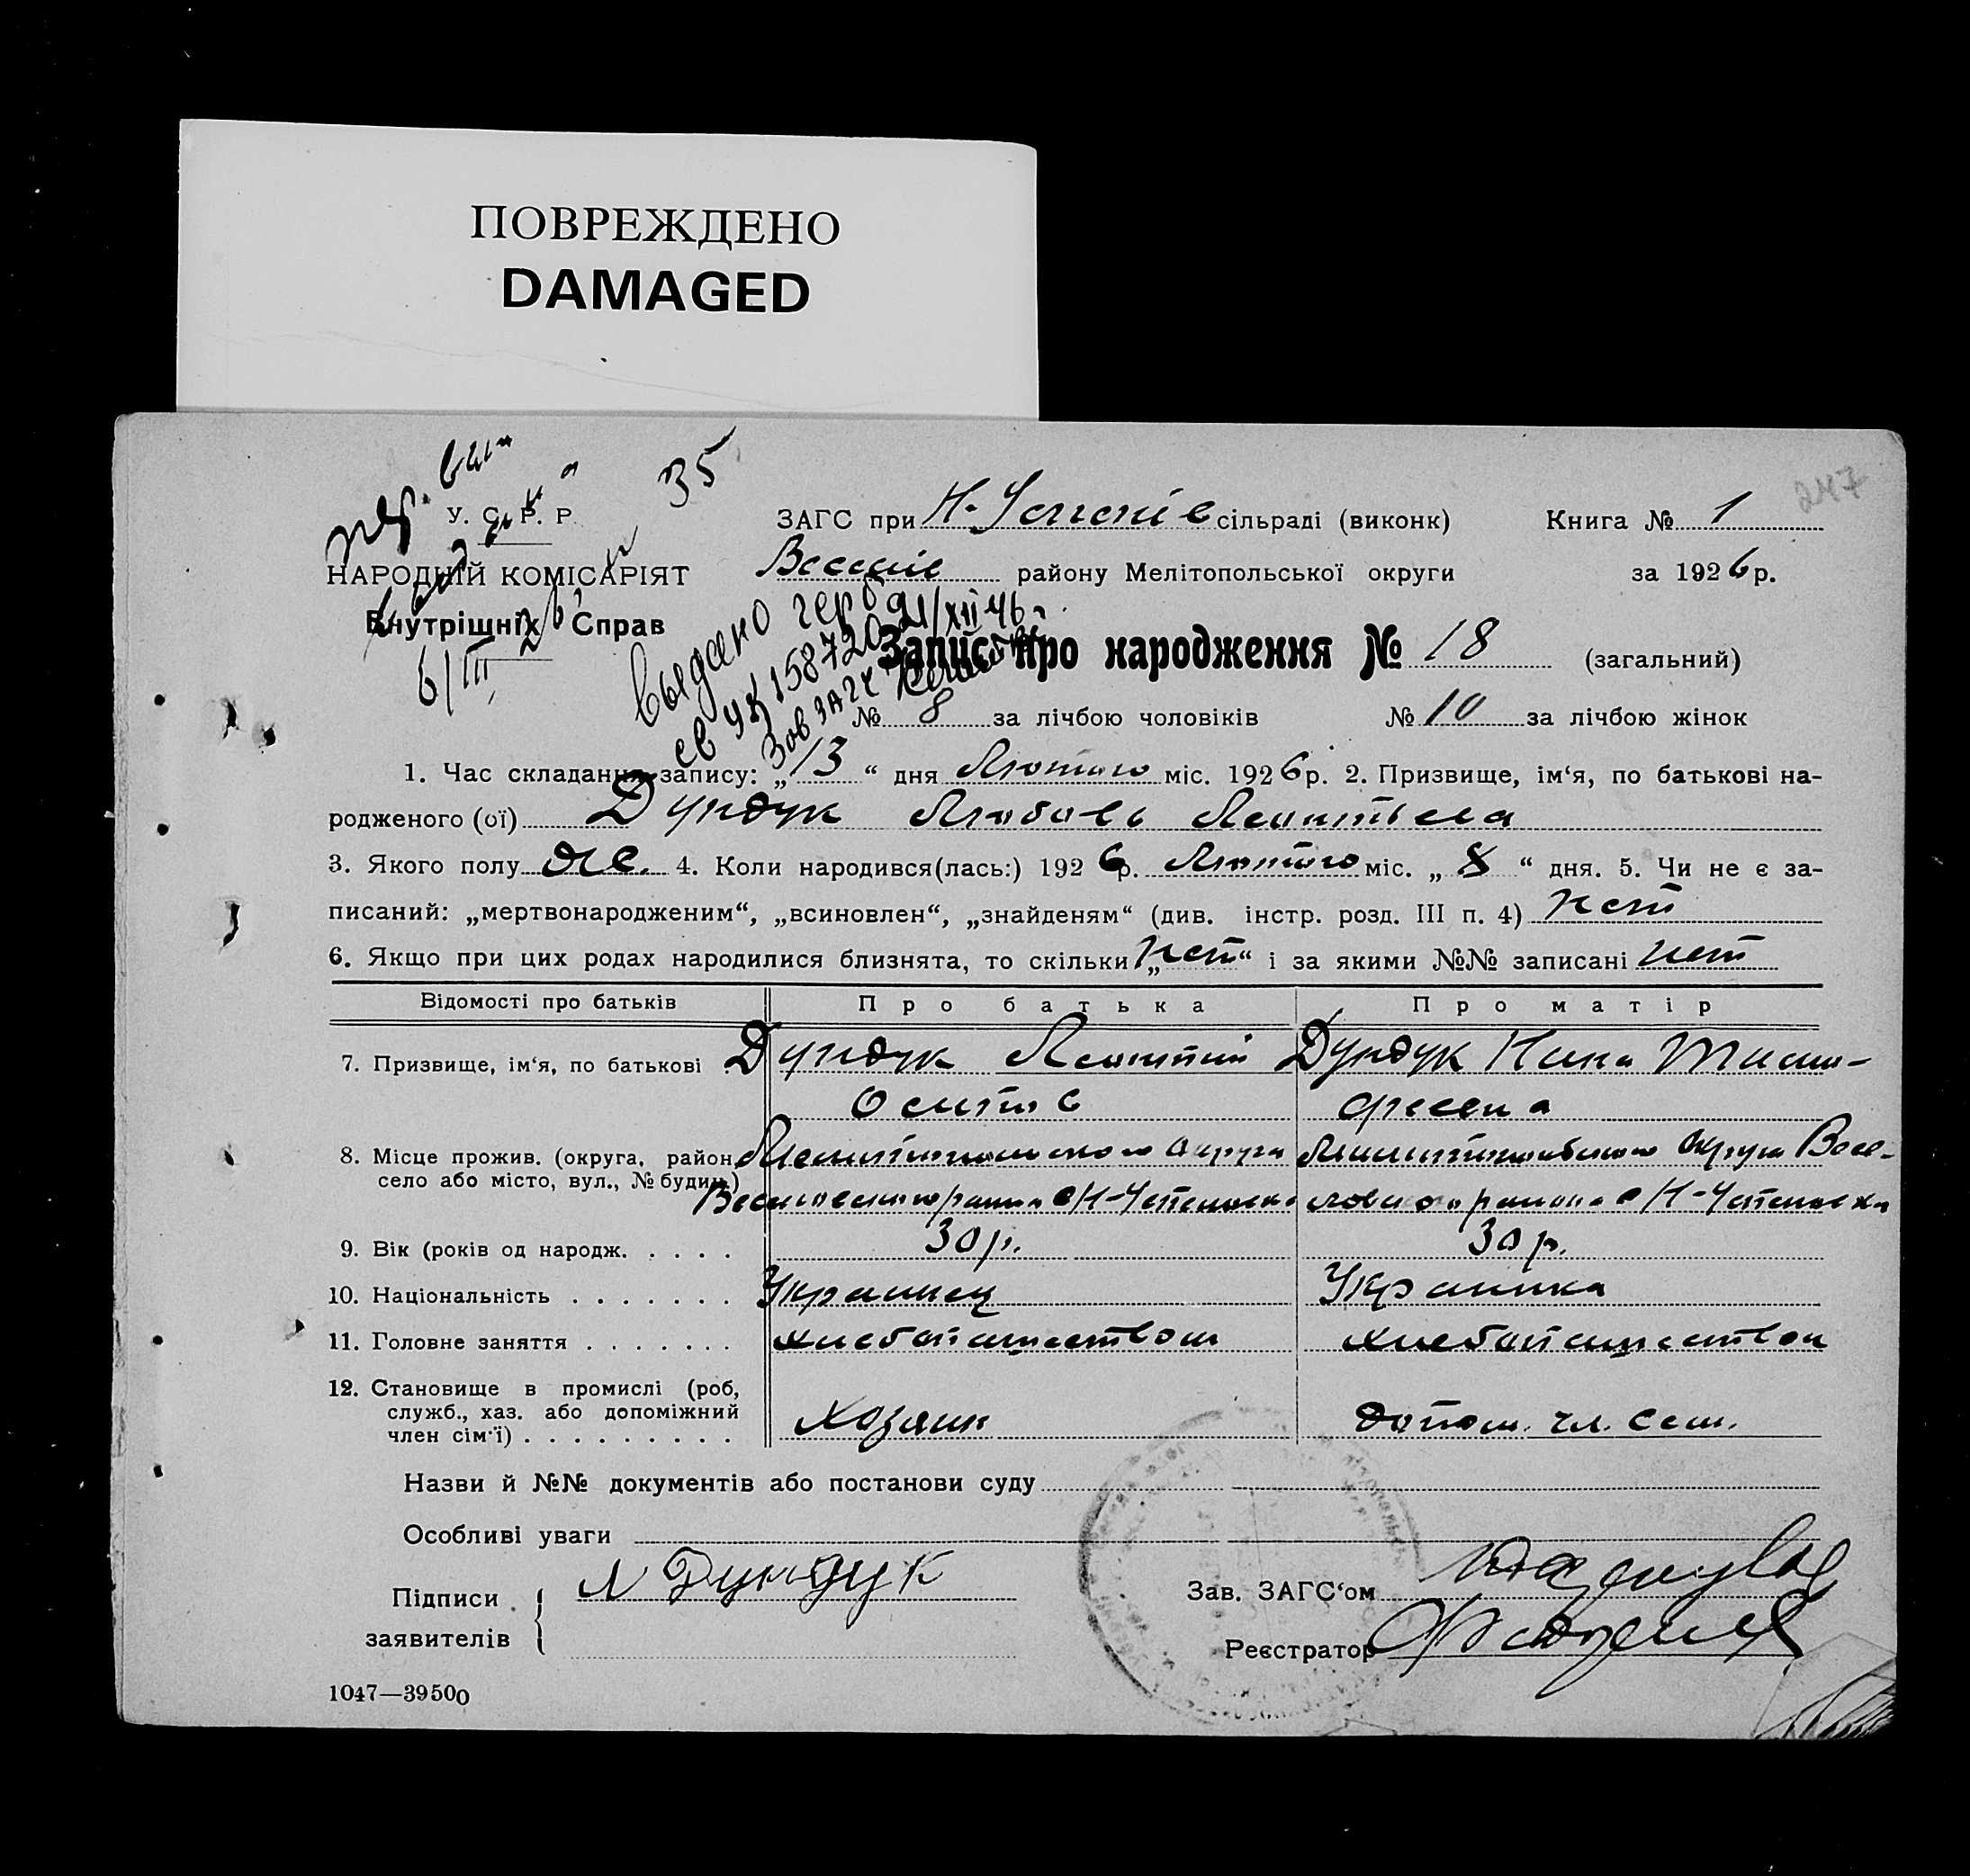 ПОВРЕЖДЕНО
DAMAGED
35
247
У. С. Р. Р.
НАРОДНІЙ КОМІСАРІЯТ
Внутрішніх Справ
6/III
ЗАГС при Н-Успенів сільраді (виконк) Книга № 1
Веселів району Мелітопольської округи за 1926 р.
Выдано герб
св УЖ 158720 21/XII 46 г.
Зав ЗАГС
Запис про народження № 18 (загальний)
№ 8 за лічбою чоловіків № 10 за лічбою жінок
1. Час складання запису: „13“ дня Лютого міс. 1926 р. 2. Призвище, ім‘я, по батькові на-
родженого (ої) Дундук Любовь Леонтьева
3. Якого полу же. 4. Коли народився(лась:) 1926 р. Лютого міс. „8“ дня. 5. Чи не є за-
писаний: „мертвонародженим“, „всиновлен“, „знайденям“ (див. інстр. розд. III п. 4) нет
6. Якщо при цих родах народилися близнята, то скільки „нет“ і за якими №№ записані нет
Відомості про батьків Про батька Про матір
7. Призвище, ім‘я, по батькові Дундук Леонтий Дундук Нина Тимо-
Осипов феевна
8. Місце прожив. (округа, район, Мелитопольского округа Мелитопольского округа Весе-
село або місто, вул., № будин.) Веселовского района с/Н-Успеновка ловского района с/Н-Успеновка
9. Вік (років од народж. . . . . 30 р. 30 р.
10. Національність . . . . . . . Украинец Украинка
11. Головне заняття . . . . . . . хлебопашеством хлебопашеством
12. Становище в промислі (роб,
служб., хаз. або допоміжний Хозяин допом. чл. сем.
член сім‘ї) . . . . . . . . .
Назви й №№ документів або постанови суду
Особливі уваги
Підписи Л Дундук Зав. ЗАГС‘ом
заявителів Реєстратор
1047—39500